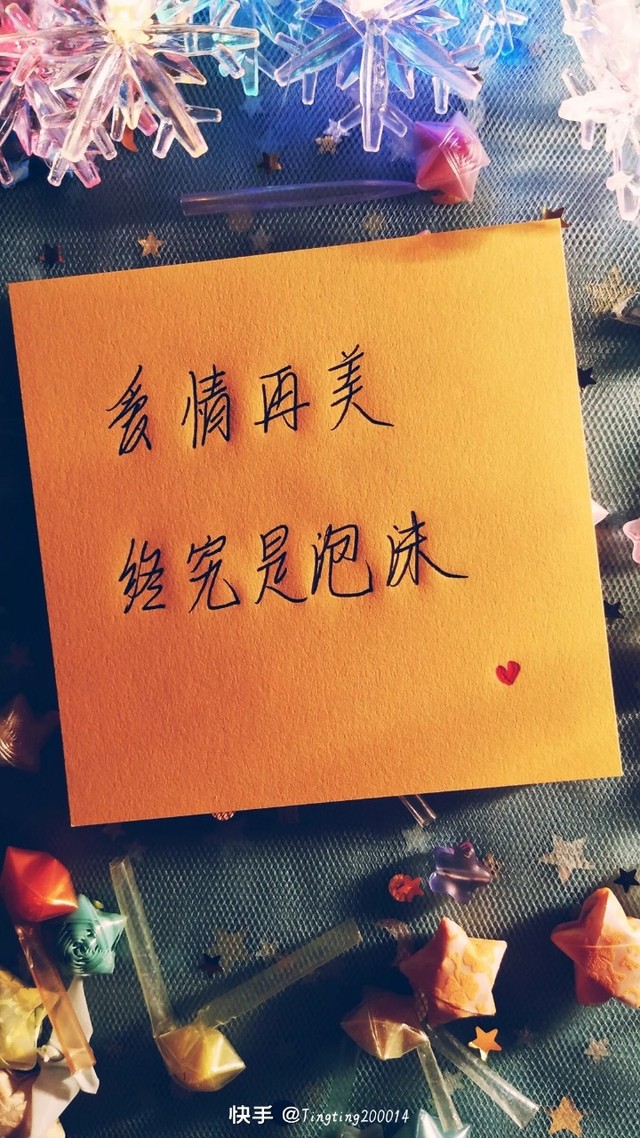 爱情再美
终究是泡沫
快手 @Tingting200014